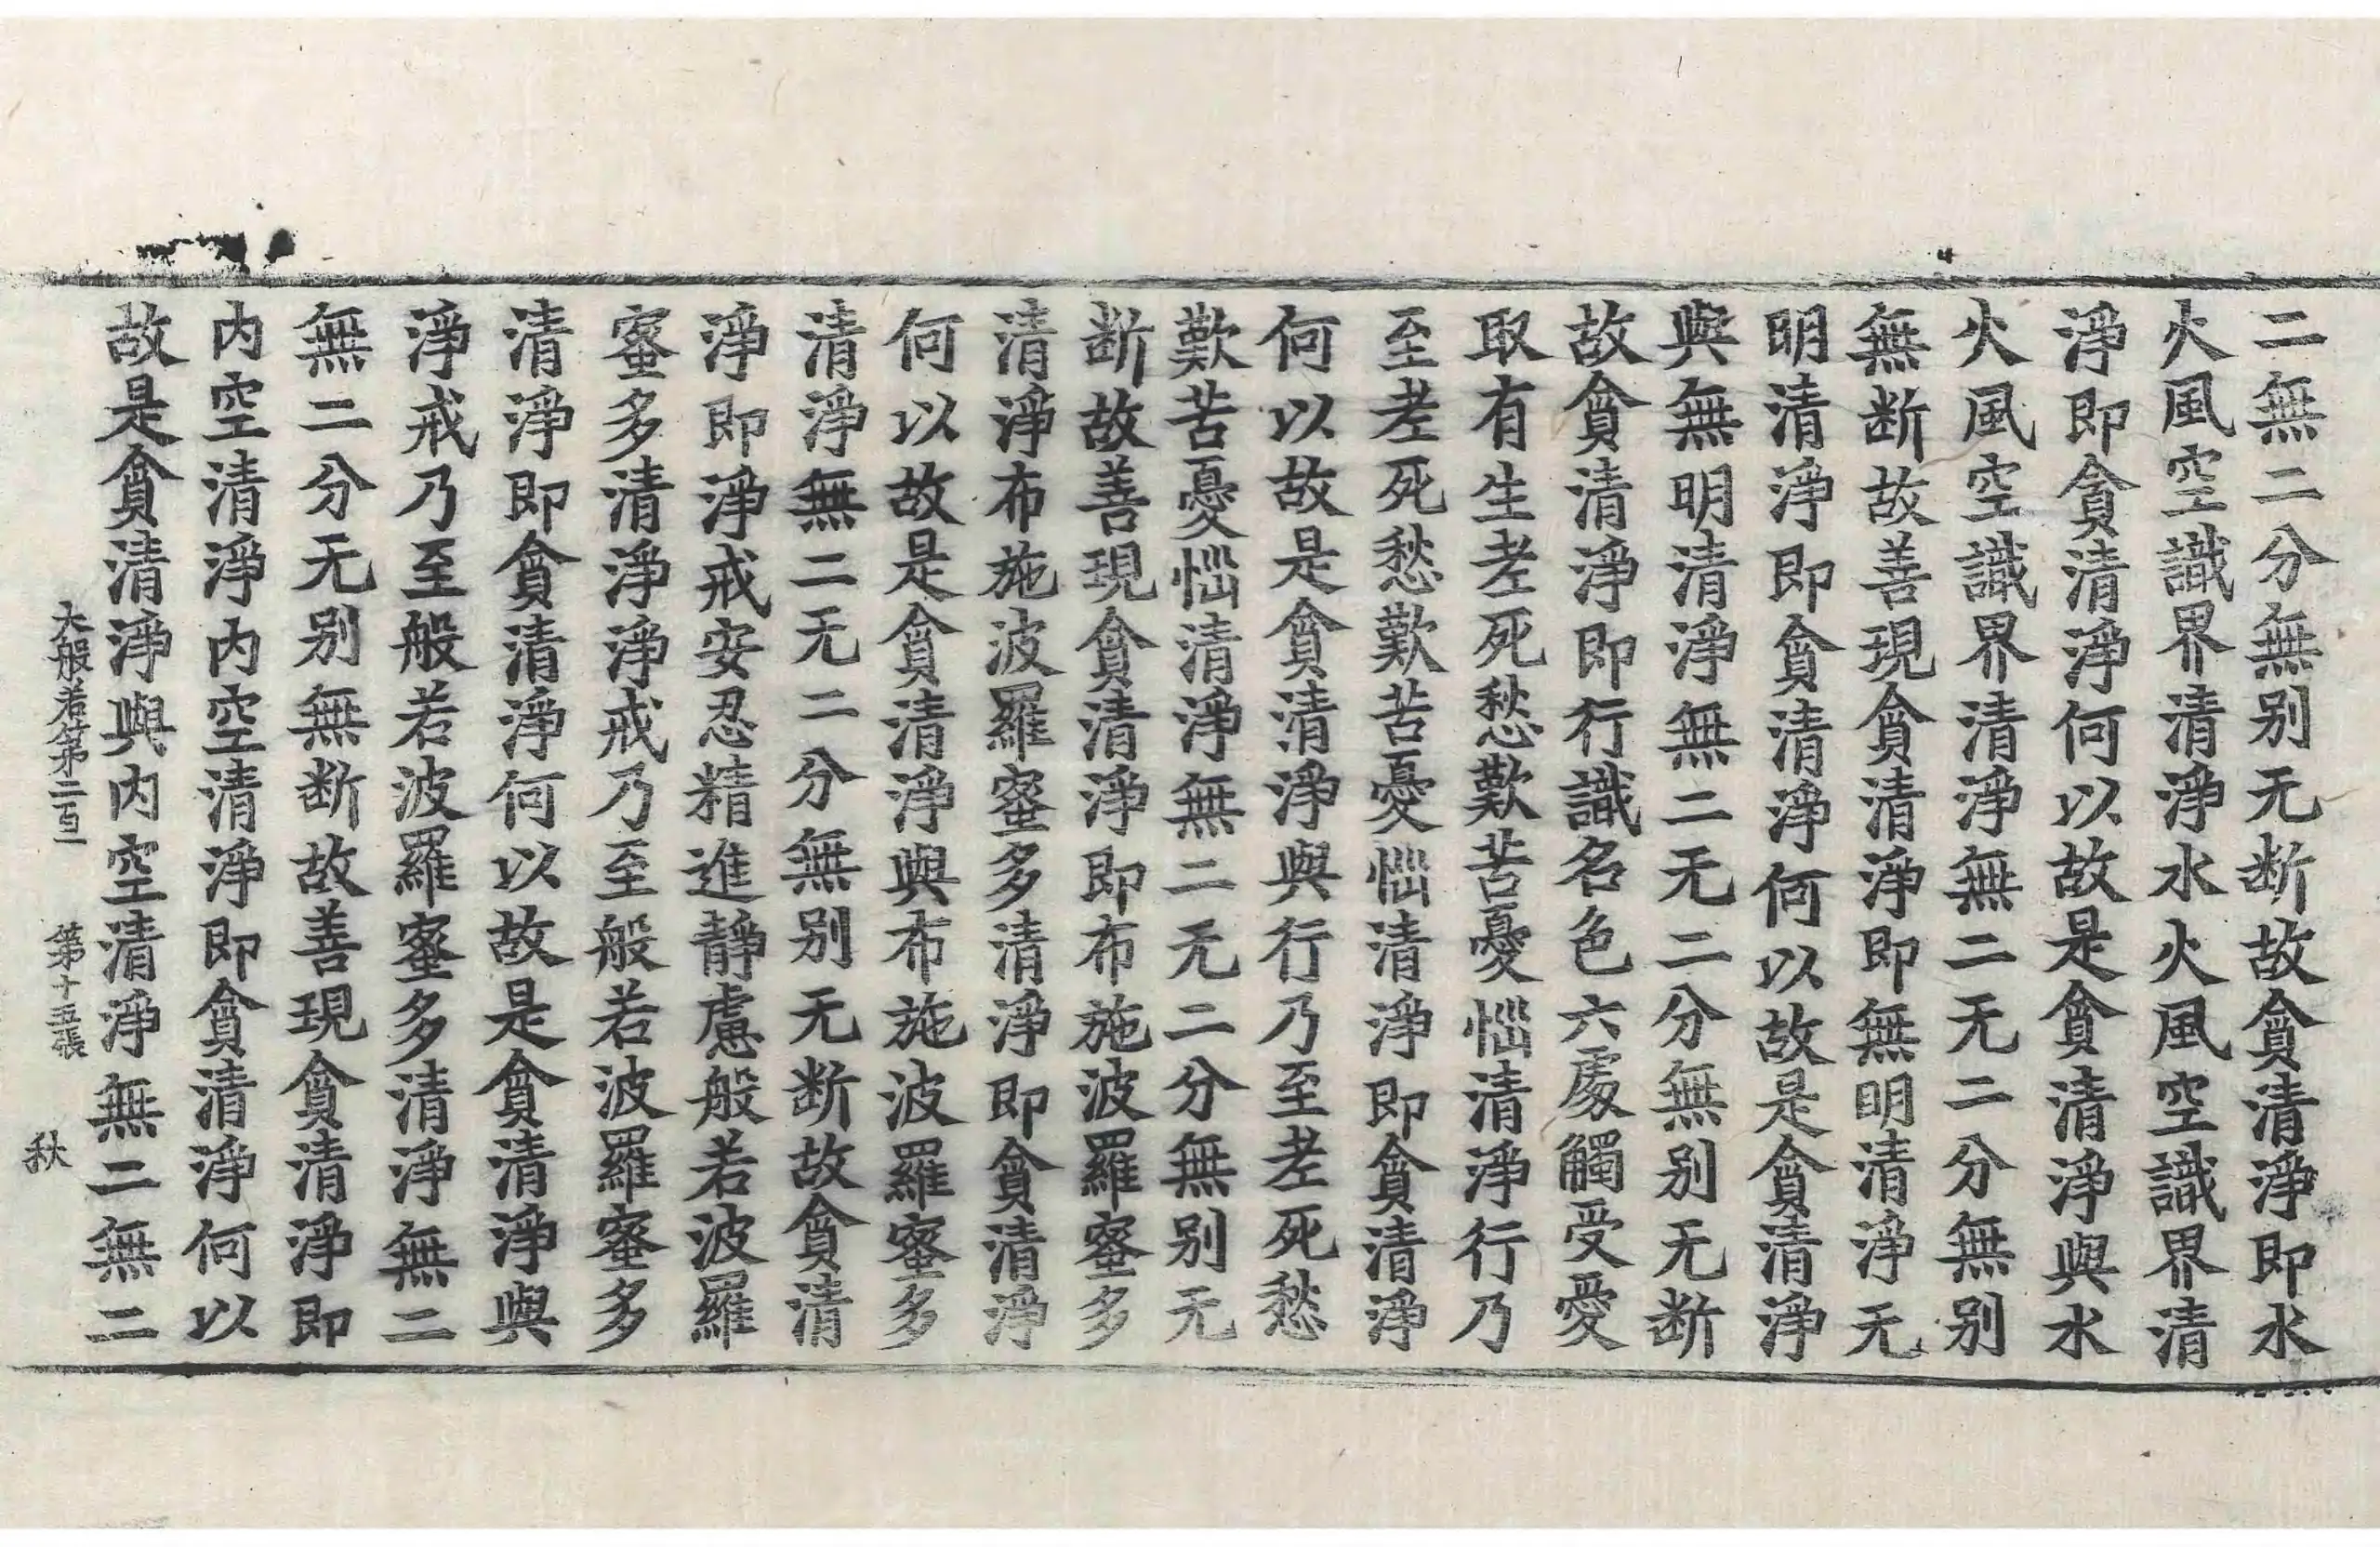 二無二分無别无断故貪清淨即水
火風空識界清淨水火風空識界清
淨即貪清淨何以故是貪清淨與水
火風空識界清淨無二无二分無别
無断故善現貪清淨即無明清淨无
明清淨即貪清淨何以故是貪清淨
與無明清淨無二无二分無别无断
故貪清淨即行識名色六處觸受愛
取有生老死愁歎苦憂惱清淨行乃
至老死愁歎苦憂惱清淨即貪清淨
何以故是貪清淨與行乃至老死愁
歎苦憂惱清淨無二无二分無别无
断故善現貪清淨即布施波羅蜜多
清淨布施波羅蜜多清淨即貪清淨
何以故是貪清淨與布施波羅蜜多
清淨無二无二分無别无断故貪清
淨即淨戒安忍精進靜慮般若波羅
蜜多清淨淨戒乃至般若波羅蜜多
清淨即貪清淨何以故是貪清淨與
淨戒乃至般若波羅蜜多清淨無二
無二分无别無断故善現貪清淨即
内空清淨内空清淨即貪清淨何以
故是貪清淨與内空清淨無二無二
大般若第二百二 第十五張 秋